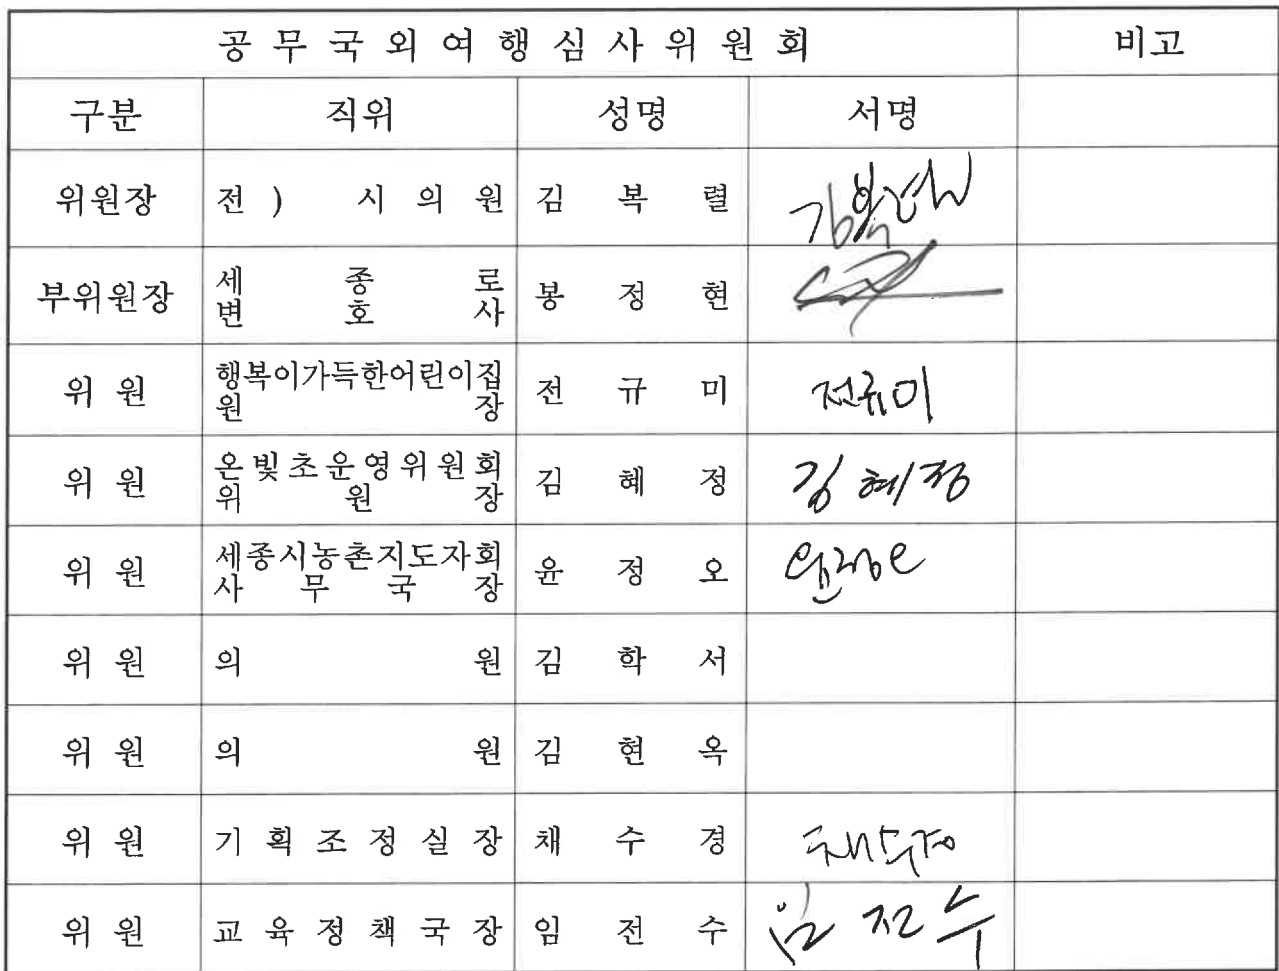 공 무 국 외 여 행 심 사 위 원 회 비고
구분 직위 성명 서명
위원장 전 ) 시 의 원 김 복 렬 김복렬
부위원장 세 종 로
변 호 사 봉 정 현
위 원 행복이가득한어린이집
원 장 전 규 미 전규미
위 원 온빛초운영위원회
위 원 장 김 혜 정 김혜정
위 원 세종시농촌지도자회
사 무 국 장 윤 정 오 윤정오
위 원 의 원 김 학 서
위 원 의 원 김 현 옥
위 원 기 획 조 정 실 장 채 수 경 채수경
위 원 교 육 정 책 국 장 임 전 수 임전수